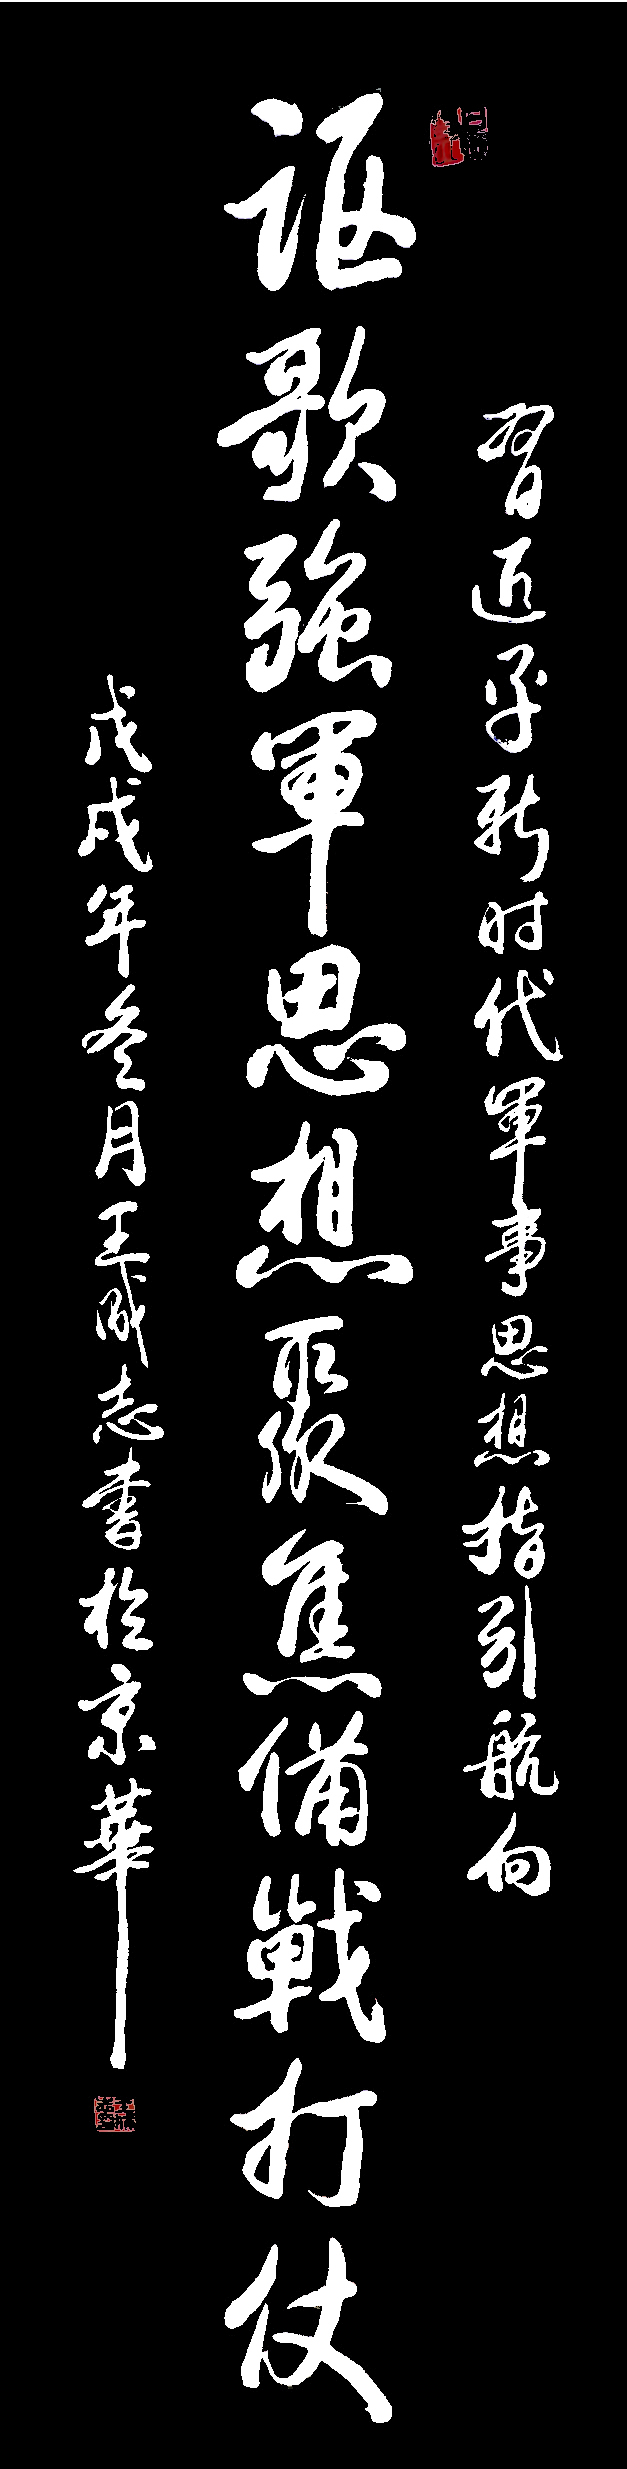 習近平新时代軍事思想指引航向
讴歌強軍思想聚焦備戰打仗
戊戌年冬月王成志书於京華